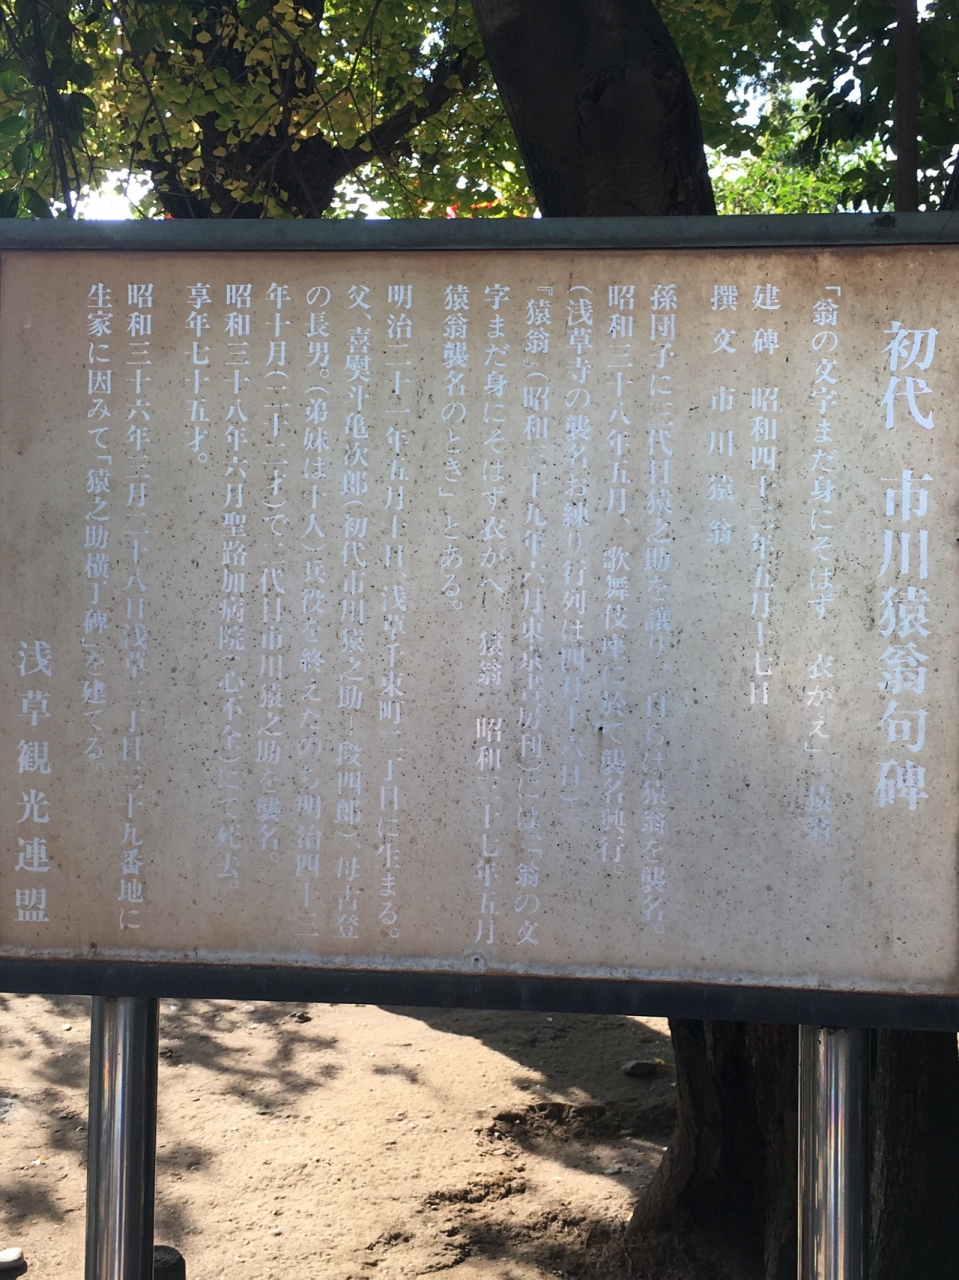 初代 市川猿翁句碑
「翁の文字まだ身にそはず 衣がえ」 猿翁
建碑 昭和四十三年五月十七日
撰文 市川猿翁
孫団子に三代目猿之助を譲り、自らは猿翁を襲名。
昭和三十八年五月、歌舞伎座に於て襲名興行。
(浅草寺の襲名お練り行列は四月十六日)
『猿翁』(昭和三十九年六月東京書房刊)には、「翁の文
字まだ身にそはず衣がへ 猿翁 昭和三十七年五月
猿翁襲名のとき」とある。
明治二十一年五月十日、浅草千束町二丁目に生まる。
父、喜熨斗亀次郎(初代市川猿之助―段四郎)、母古登
の長男。(弟妹は十人)兵役を終えたのち明治四十三
年十月(二十二才)で二代目市川猿之助を襲名。
昭和三十八年六月聖路加病院(心不全)にて死去。
享年七十五才。
昭和三十六年三月二十八日浅草三丁目三十九番地に
生家に因みて「猿之助横丁碑」を建てる。
浅草観光連盟